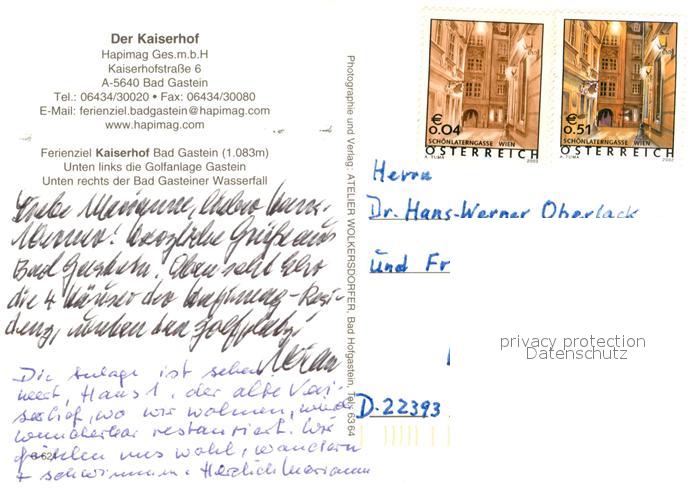 Der Kaiserhof
Hapimag Ges.m.b.H
Kaiserhofstraße 6
A-5640 Bad Gastein
Tel.: 06434/30020 • Fax: 06434/30080
E-Mail: ferienziel.badgastein@hapimag.com
www.hapimag.com
Ferienziel Kaiserhof Bad Gastein (1.083m)
Unten links die Golfanlage Gastein
Unten rechts der Bad Gasteiner Wasserfall
Liebe Marianne, lieber Hans-
Werner! Herzliche Grüße aus
Bad Gastein. Oben seht Ihr
die 4 Häuser der Hapimag-Resi-
denz, unten den Golfplatz
Die Anlage ist sehr
nett, Haus 1, der alte Kai-
serhof, wo wir wohnen, wurde
wunderbar restauriert. Wir
fühlen uns wohl, wandern
+ schwimmen. Herzlich Mariann
Photographie und Verlag: ATELIER WOLKERSDORFER, Bad Hofgastein, Tel. 6364
€
0.04
SCHÖNLATERNGASSE WIEN
ÖSTERREICH
A. TUMA 2002
€
0.51
SCHÖNLATERNGASSE WIEN
ÖSTERREICH
A. TUMA 2002
Herrn
Dr. Hans-Werner Oberlack
und Fr
D-22393
privacy protection
Datenschutz